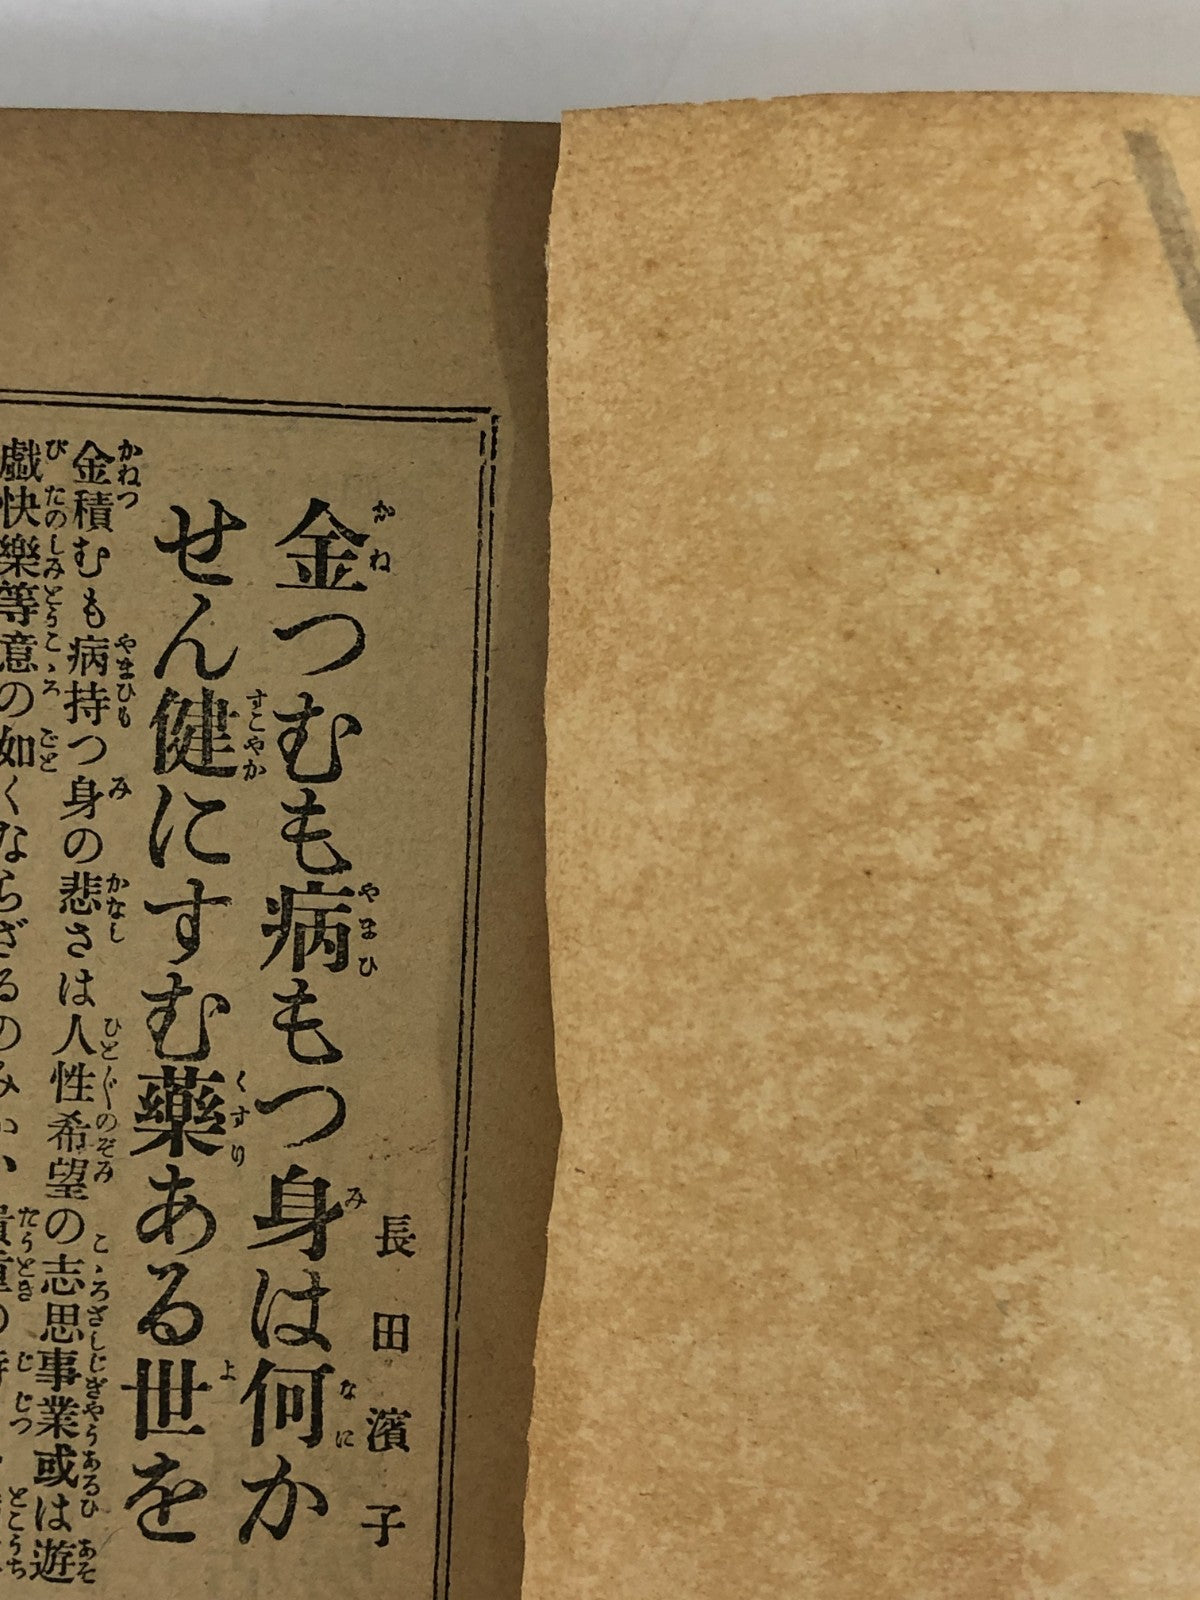 長田濱子
金つむも病もつ身は何か
せん健にすむ藥ある世を
金積むも病持つ身の悲さは人性希望の志思事業或は遊
戯快樂等意の如くならざるのみ